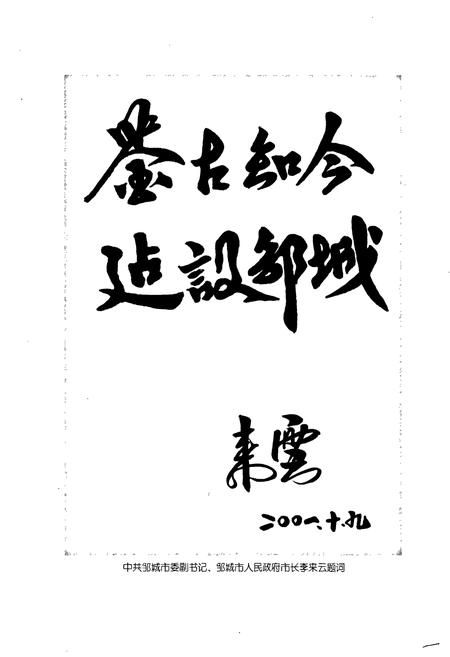 鉴古知今
建設邹城
来雲
二00一.十.九
中共邹城市委副书记、邹城市人民政府市长李来云题词
一